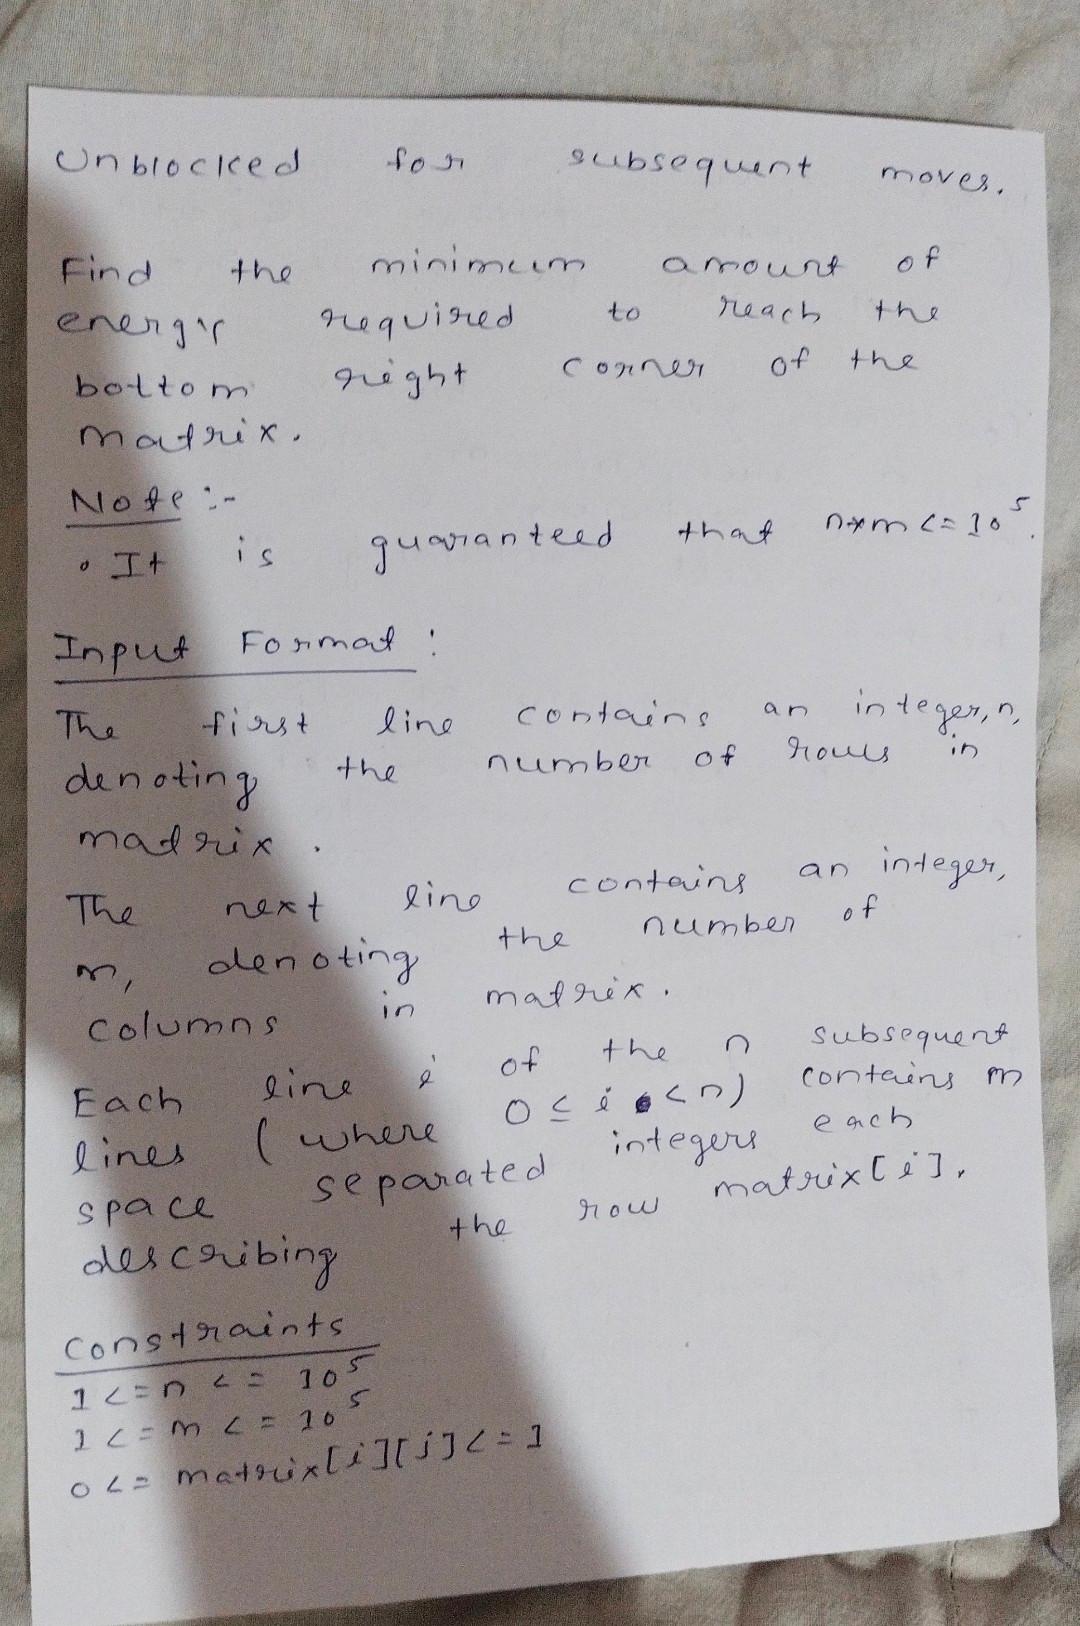 Unblocked for subsequent moves.
Find the minimum amount of
energy required to reach the
bottom right corner of the
matrix.
Note :-
• It is guaranteed that n*m <= 10^5.
Input Format :
The first line contains an integer, n,
denoting the number of rows in
matrix.
The next line contains an integer,
m, denoting the number of
columns in matrix.
Each line i of the n subsequent
lines (where 0 ≤ i < n) contains m
space separated integers each
describing the row matrix[i].
Constraints
1 <= n <= 10^5
1 <= m <= 10^5
0 <= matrix[i][j] <= 1